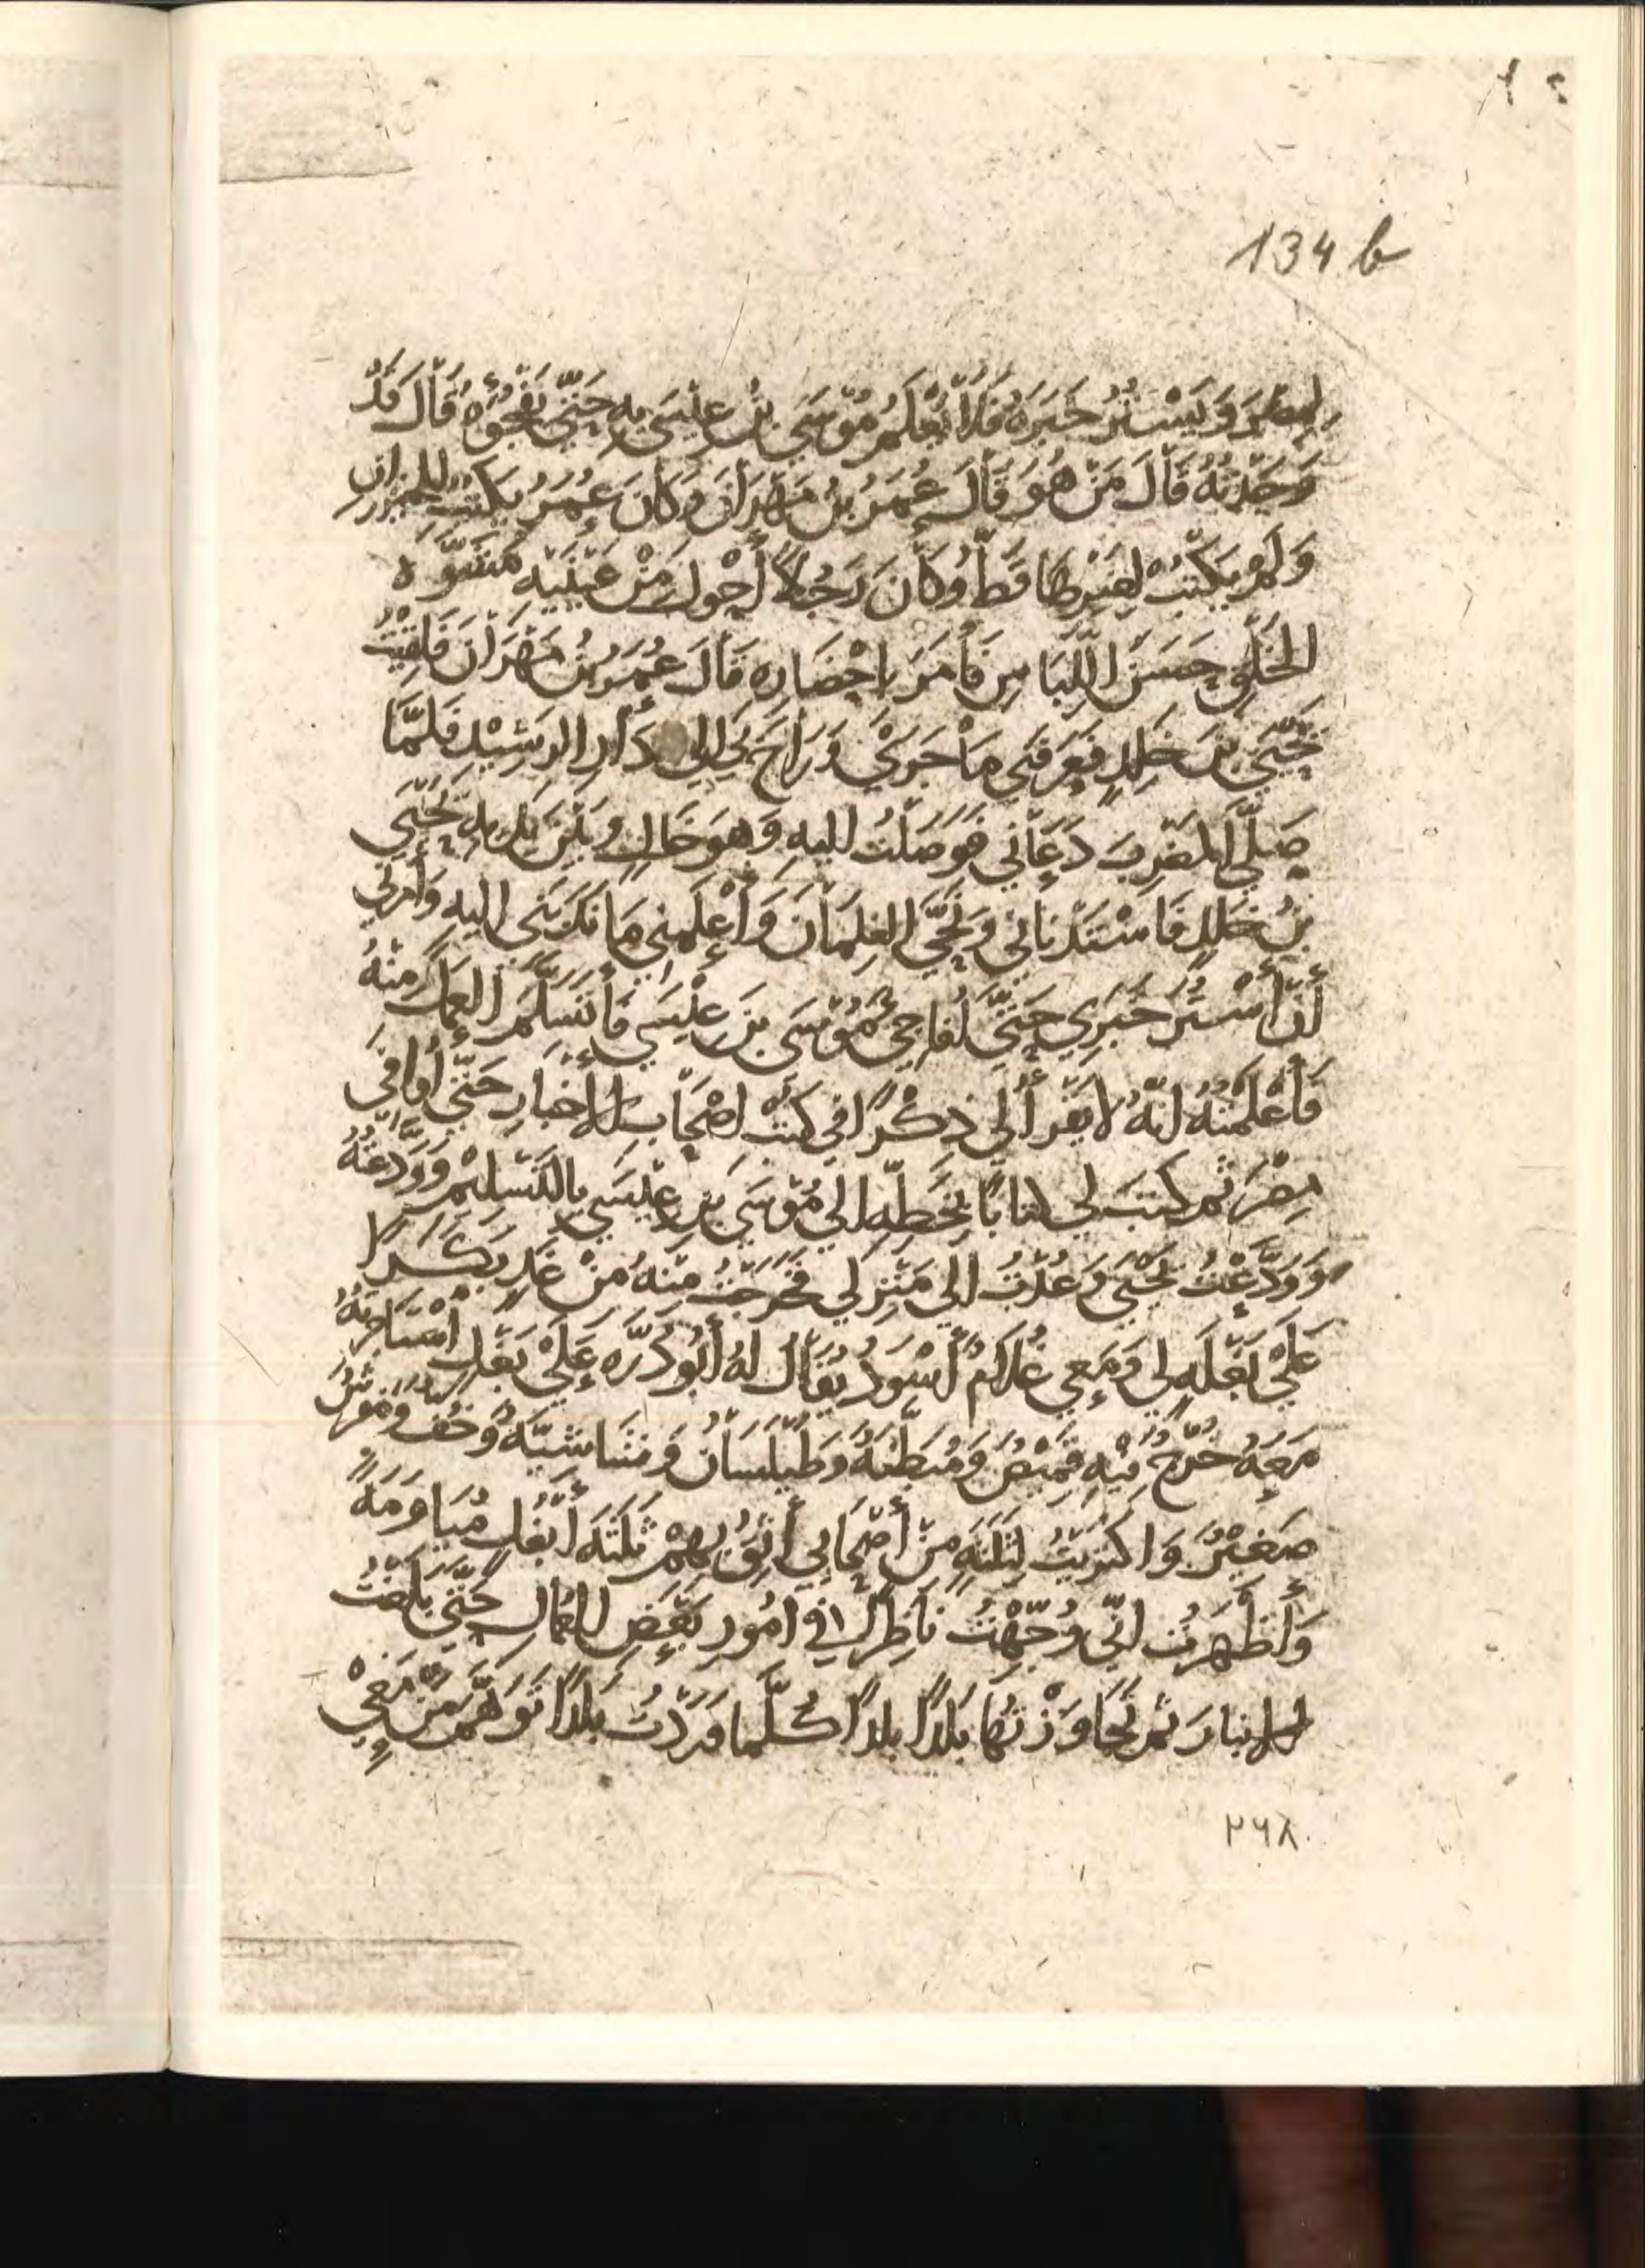 134 b
لِمِصْرَ وَيَسْتُرُ خَبَرَهُ فَلَا يَعْلَمُ مُوْسَى بْنُ عِيْسَى بِهِ حَتَّى يَفْجَؤُهُ قَالَ قَدْ
وَجَدْتُهُ قَالَ مَنْ هُوَ قَالَ عُمَرُ بْنُ مَهْرَانَ وَكَانَ عُمَرُ يَكْتُبُ للخيزران
وَلَمْ يَكْتُبْ لِغَيْرِهَا قَطُّ وَكَانَ رَجُلًا أَحْوَلَ مِنْ عَيْنَيْهِ مُشَوَّه
الخَلْقِ حَسَنَ اللِّبَاسِ فَأَمَرَ بِإحْضَارِهِ قَالَ عُمَرُ بْنُ مَهْرَانَ فَلَقِيْتُ
يَحْيَى بنَ خَلِدٍ فَعَرَّفَنِي مَا جَرَى وَرَاحَ بِي إلى دَارِ الرَّشِيْدِ فَلَمَّا
صَلَّى المَغْرِبَ دَعَانِي فَوَصَلْتُ إليهِ وَهوَ خَالٍ وَبَيْنَ يَدَيهِ يَحْيَى
بْنُ خَلِدٍ فَاسْتَدْنَانِي وَنَحَّى الغِلمَانَ وَأَعْلَمَنِي مَا نَدَبَنِي إليهِ وَأمرني
أَنْ أَسْتُرَ خَبَرِي حَتَّى أُفَاجِئَ مُوْسَى بنَ عِيْسَى فَأَتَسَلَّمَ العَمَلَ مِنْهُ
فَأَعْلَمْتُهُ انّهُ لا يَقْرَأُ لِي ذِكْرًا فِي كُتُبِ اصْحَابِ الأخبَارِ حَتَّى أُوَافِيَ
مِصْرَ ثمّ كتبَ لِي كتابًا بِخَطِّهِ إلى مُوْسَى بنِ عِيْسَى بِالتَّسْلِيْمِ وَوَدَّعْتُهُ
وَوَدَّعْتُ يَحْيَى وَعُدْتُ الى مَنْزِلِي فَخَرَجْتُ مِنْهُ مِنْ غَدٍ بَكَرًا
عَلَى بَغْلَةٍ لِي وَمَعِي غُلَامٌ أَسْوَدُ يُقَالُ لهُ أَبُو دُرَّه عَلَى بَغْلٍ أسْتَاجَرتُهُ
مَعَهُ خُرْجٌ فِيْهِ قَمِيْصٌ وَمُبَطَّنَةٌ وَطَيْلَسَانٌ وَشَاشِيَّةٌ وَخُفٌّ وَمَفْرَشٌ
صَغِيْرٌ وَاكْتَرَيْتُ لِثَلَثَةٍ مِنْ أَصْحَابِي أَثِقُ بِهِمْ ثَلَثَةَ أَبْغُلٍ مُيَاوَمَةً
وَأَظْهَرْتُ انِّي وُجِّهْتُ نَاظِرًا فِي امُورِ بَعْضِ العُمَّالِ حَتَّى بَلَغْتُ
الانبارَ ثمّ تَجَاوَزْتُهَا بَلَدًا بلدًا كُلَّمَا وَرَدْتُ بَلَدًا تَوَهَّمَ مَنْ مَعِيْ
٢٦٨